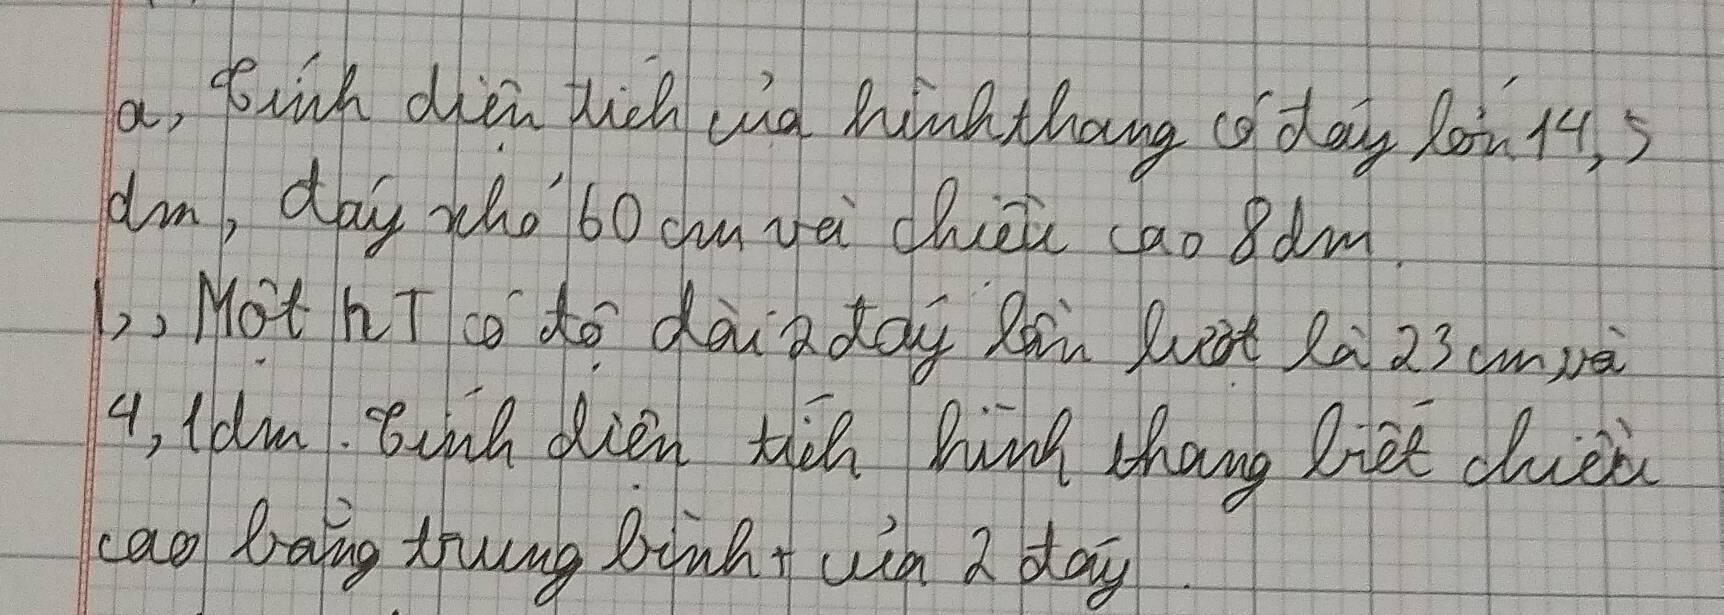 a, Tính diện tích của hình thang có đáy lớn 14,5
dm, đáy nhỏ 60 cm và chiều cao 8dm.
b, Một hT có độ dài 2 đáy lần lượt là 23 cm và
4,1dm. Tính diện tích hình thang biết chiều
cao bằng trung bình + của 2 đáy.